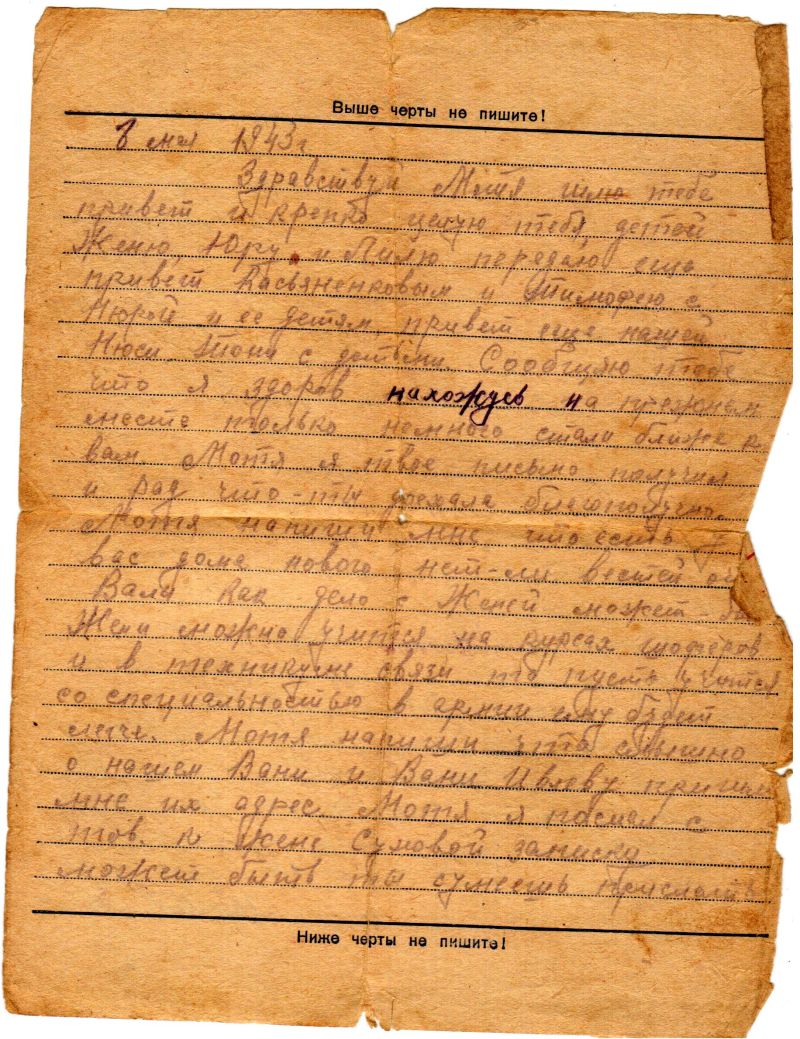 Выше черты не пишите!
8 мая 1943г
Здравствуй Мотя шлю тебе
привет и крепко целую тебя, детей
Женю, Юру и Лилю передаю еще
привет Касьяненковым и Тимофею с
Нюрой и ее детям привет еще нашей
Нюси Тони с детьми Сообщаю тебе
что я здоров нахожусь на прежнем
месте только немного стали ближе к
вам Мотя я твое письмо получил
и рад что-ты доехала благополучно
Мотя напиши мне что есть у
вас дома нового нет-ли вестей от
Вали как дело с Женей может
Жени можно учится на курсах шоферов
и в техникуме связи то пусть учится
со специальностью в армии ему будет
легче. Мотя напиши что слышно
о нашем Вани и Вани пришли
мне их адрес. Мотя я послал с
тов. к жене Сумовой записку
может быть ты сумеешь прислать
Ниже черты не пишите!